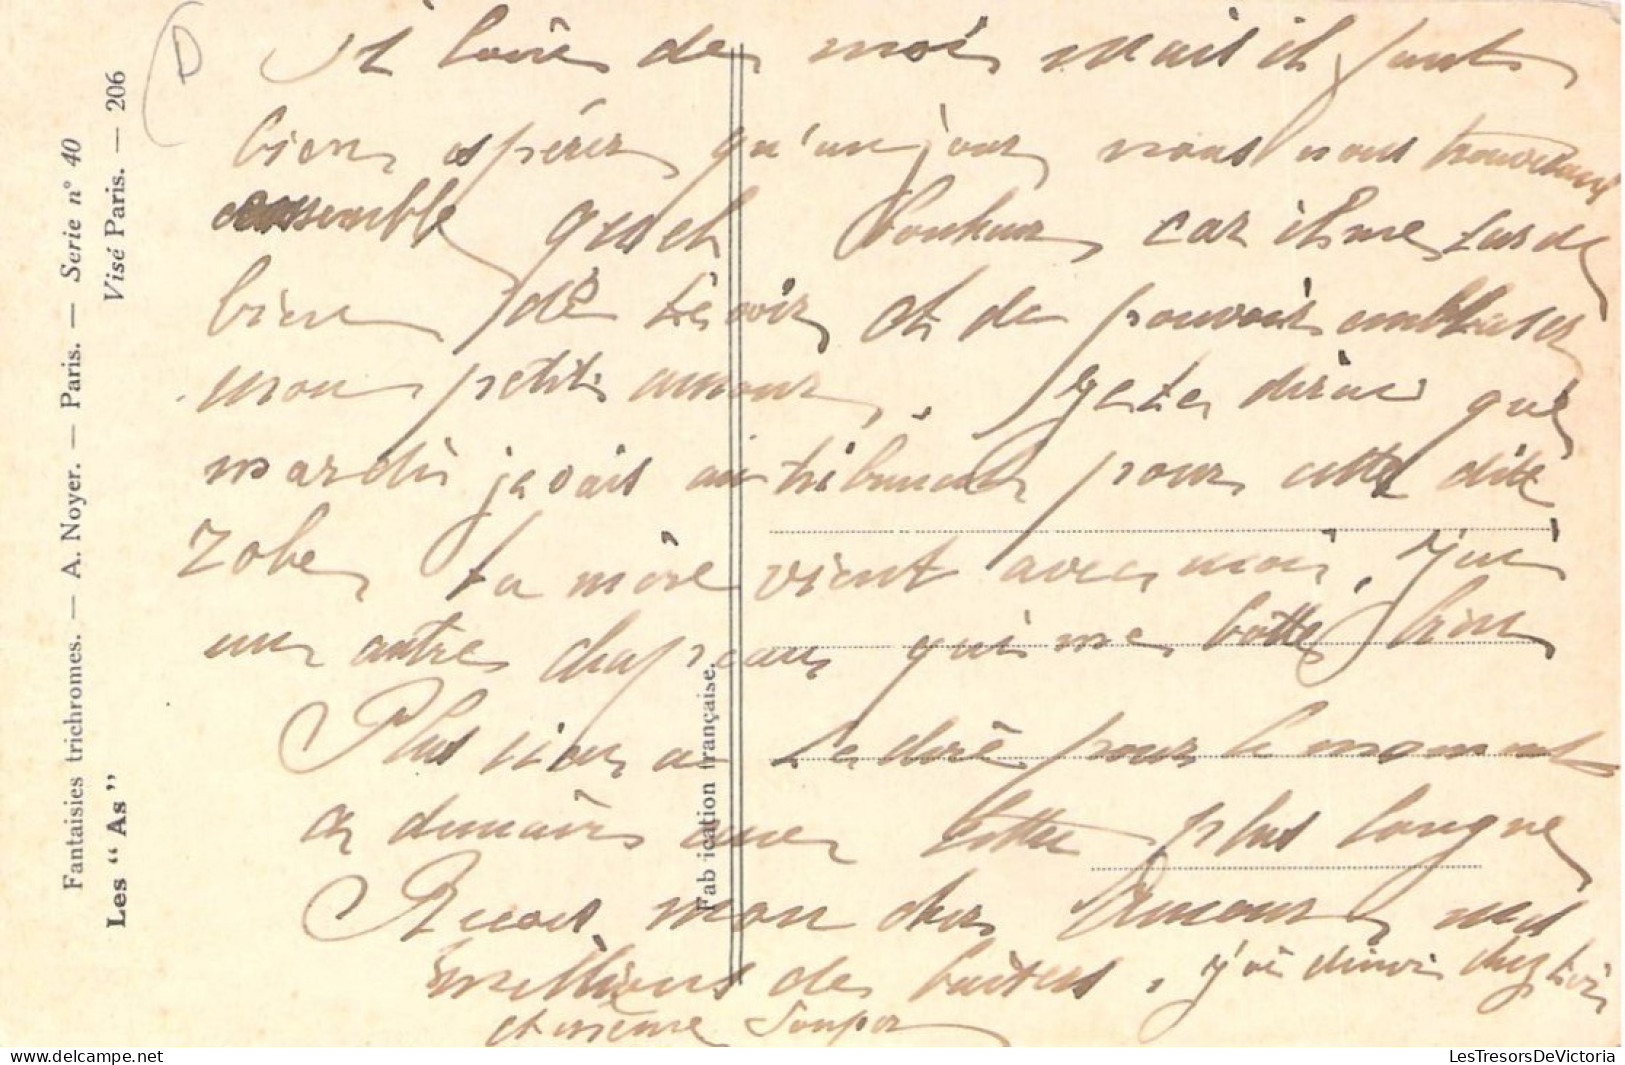 Fantaisies trichromes. — A. Noyer. — Paris. — Serie n° 40
Les “ As ” Visé Paris. — 206
Fabrication française.
D
et loin de moi Mais il faut
bien espérer qu'un jour nous nous trouverons
ensemble quel bonheur car il me tarde
bien de te voir et de pouvoir embrasser
mon petit amour. Je te dirai que
mardi je vais au tribunal pour cette dite
Zobe ta mère vient avec moi. J'ai
un autre chapeau qui me botte bien
Plus rien a te dire pour le moment
a demain une lettre plus longue
Recois mon cher Amour mes
millions de baisers. j'ai diner chez toi
et même Souper
LesTresorsDeVictoria
www.delcampe.net